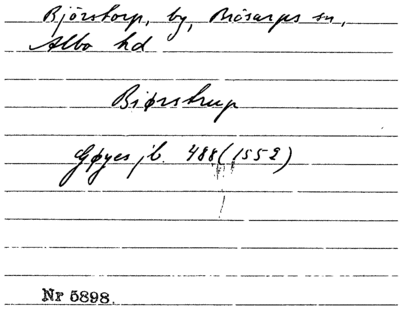 Bjørstorp, by, Brösarps sn,
Albo hd
Biørstrup
Gøyes jb. 488 (1552)
Nr 5898.